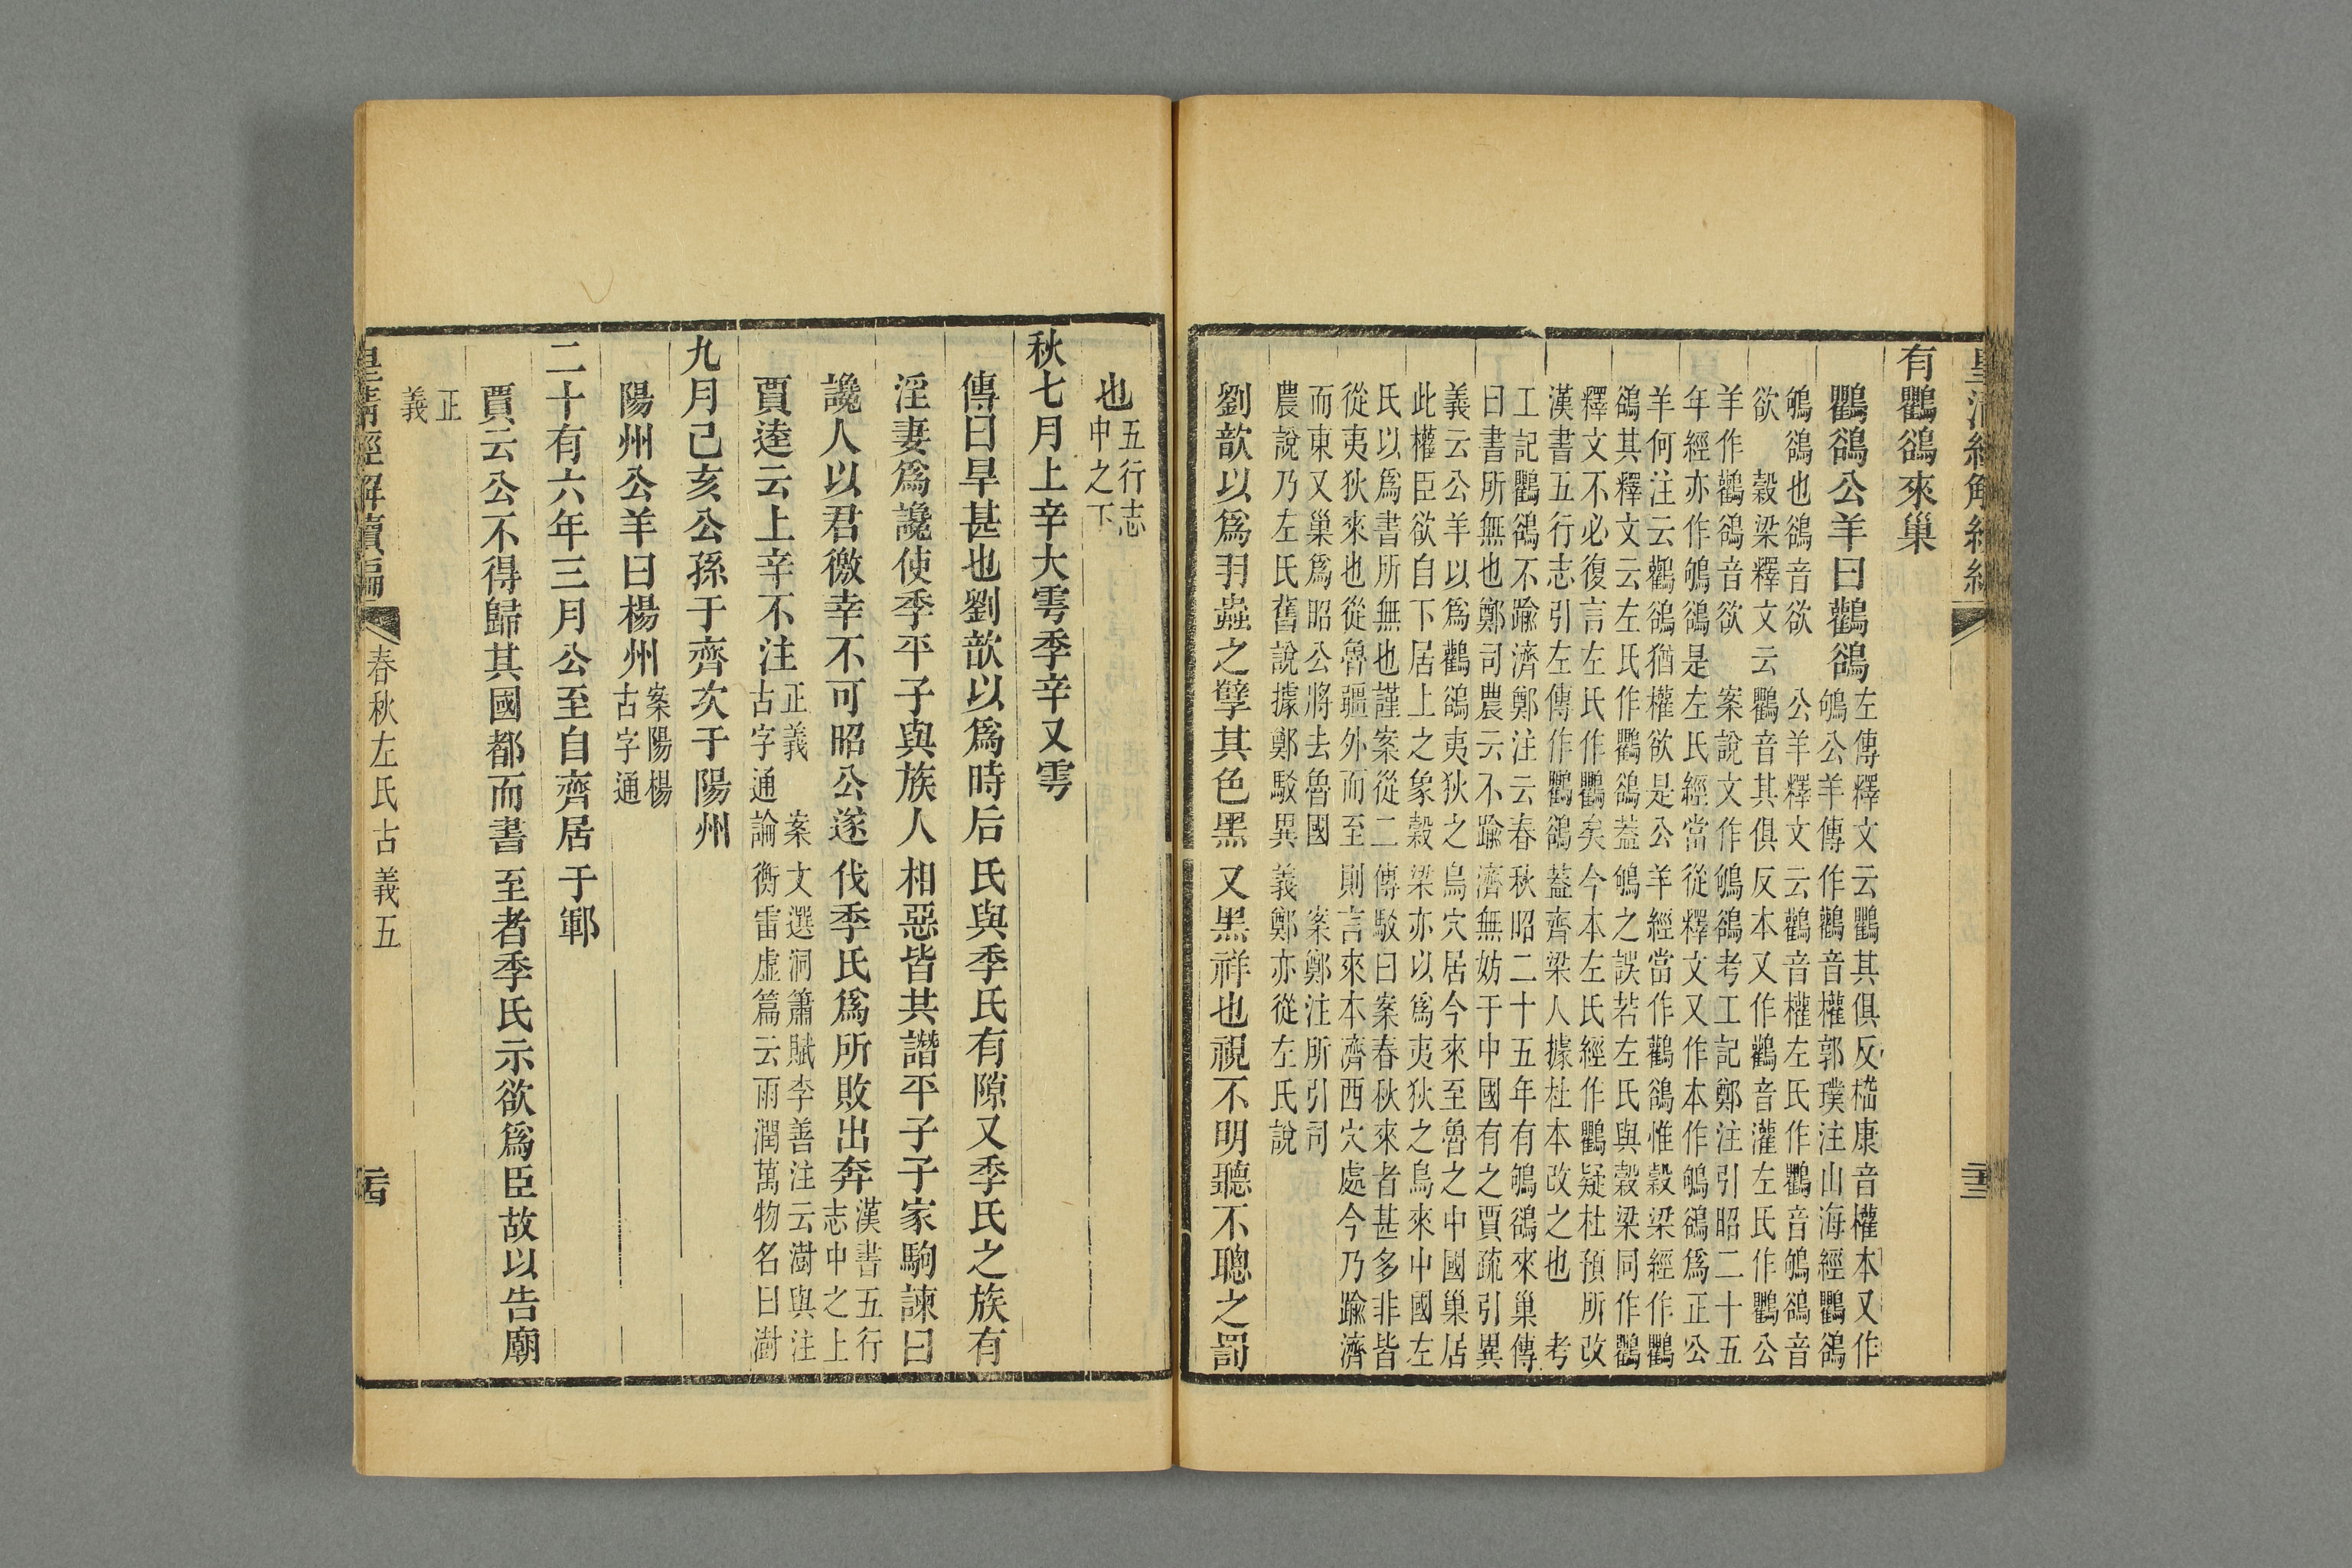 有鸜鵒來巢
鸜鵒公羊曰鸛鵒
左傳釋文云鸜其俱反嵇康音權本又作
鴝公羊傳作鸛音權郭璞注山海經鸜鵒
鴝鵒也鵒音欲　公羊釋文云鸛音權左氏作鸜音鴝鵒音
欲　穀梁釋文云鸜音其俱反本又作鸛音灌左氏作鸜公
羊作鸛鵒音欲　案說文作鴝鵒考工記鄭注引昭二十五
年經亦作鴝鵒是左氏經當從釋文又作本作鴝鵒爲正公
羊何注云鸛鵒猶權欲是公羊經當作鸛鵒惟穀梁經作鸜
鵒其釋文云左氏作鸜鵒蓋鴝之誤若左氏與穀梁同作鸜
釋文不必復言左氏作鸜矣今本左氏經作鸜疑杜預所改
漢書五行志引左傳作鸜鵒蓋齊梁人據杜本改之也　考
工記鸜鵒不踰濟鄭注云春秋昭二十五年有鴝鵒來巢傳
曰書所無也鄭司農云不踰濟無妨于中國有之賈疏引異
義云公羊以爲鸛鵒夷狄之鳥穴居今來至魯之中國巢居
此權臣欲自下居上之象穀梁亦以爲夷狄之鳥來中國左
氏以爲書所無也謹案從二傳駁曰案春秋來者甚多非皆
從夷狄來也從魯疆外而至則言來本濟西穴處今乃踰濟
而東又巢爲昭公將去魯國　案鄭注所引司
農說乃左氏舊說據鄭駁異義鄭亦從左氏說
劉歆以爲羽蟲之孽其色黑又黑祥也視不明聽不聰之罰
也
五行志
中之下
秋七月上辛大雩季辛又雩
傳曰旱甚也劉歆以爲時后氏與季氏有隙又季氏之族有
淫妻爲讒使季平子與族人相惡皆共譖平子子家駒諫曰
讒人以君徼幸不可昭公遂伐季氏爲所敗出奔
漢書五行
志中之上
賈逵云上辛不注
正義　案文選洞簫賦李善注云澍與注
古字通論衡雷虛篇云雨潤萬物名曰澍
九月己亥公孫于齊次于陽州
陽州公羊曰楊州
案陽楊
古字通
二十有六年三月公至自齊居于鄆
賈云公不得歸其國都而書至者季氏示欲爲臣故以告廟
正
義
皇清經解續編
春秋左氏古義五